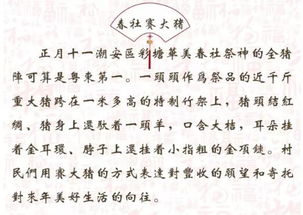 春社賽大猪
正月十一潮安區彩塘華美春社祭神的全猪
陣可算是粤東第一。一頭頭作爲祭品的近千斤
重大猪跨在一米多高的特制竹架上，猪頭結紅
綢、猪身上還馱着一頭羊，口含大桔，耳朵挂
着金耳環、脖子上還挂着小指粗的金項鏈。村
民們用賽大猪的方式表達對豐收的願望和寄托
對來年美好生活的向往。